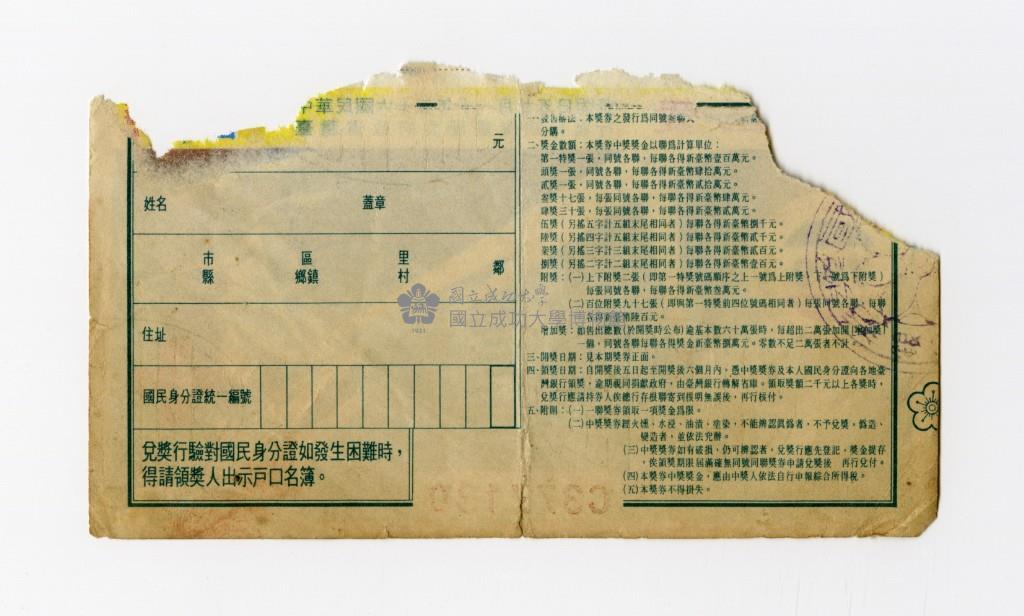 元
姓名 蓋章
市 區 里 鄰
縣 鄉鎮 村
住址
國民身分證統一編號
兌獎行驗對國民身分證如發生困難時，
得請領獎人出示戶口名簿。
一、發售辦法：本獎券之發行爲同號
分購。
二、獎金數額：本獎券中獎獎金以聯爲計算單位：
第一特獎一張，同號各聯，每聯各得新臺幣壹百萬元。
頭獎一張，同號各聯，每聯各得新臺幣肆拾萬元。
貳獎一張，同號各聯，每聯各得新臺幣貳拾萬元。
叁獎十七張，每張同號各聯，每聯各得新臺幣肆萬元。
肆獎三十張，每張同號各聯，每聯各得新臺幣貳萬元。
伍獎（另搖五字計五組末尾相同者）每聯各得新臺幣捌千元。
陸獎（另搖四字計五組末尾相同者）每聯各得新臺幣貳千元。
柒獎（另搖三字計三組末尾相同者）每聯各得新臺幣貳百元。
捌獎（另搖二字計二組末尾相同者）每聯各得新臺幣壹百元。
附獎：(一)上下附獎二張（即第一特獎號碼順序之上一號爲上附獎，下一號爲下附獎）
每張同號各聯，每聯各得新臺幣叁萬元。
(二)百位附獎九十七張（即與第一特獎前四位號碼相同者）每張同號各聯，每聯
各得新臺幣陸百元。
增加獎：銷售出總數(於開獎時公布)逾基本數六十萬張時，每超出二萬張加開「增加獎」
一個，同號每聯每聯各得獎金新臺幣捌萬元。零數不足二萬張者不計。
三、開獎日期：見本期獎券正面。
四、領獎日期：自開獎後五日起至開獎後六個月內，憑中獎獎券及本人國民身分證向各地臺
灣銀行領獎，逾期視同捐獻政府，由臺灣銀行轉解省庫。領取獎額二千元以上各獎時，
兌獎行應請持券人俟總行存根聯寄到核明無誤後，再行核付。
五、附則：(一)一聯獎券領取一項獎金爲限。
(二)中獎獎券經火燻、水浸、油漬、塗染，不能辨認眞僞者，不予兌獎，僞造、
變造者，並依法究辦。
(三)中獎獎券如有破損，仍可辨認者，兌獎行應先登記，獎金提存
，俟領獎期限屆滿確無同號同聯獎券申請兌獎後 再行兌付。
(四)本獎券中獎獎金，應由中獎人依法自行申報綜合所得稅。
(五)本獎券不得掛失。
國立成功大學
國立成功大學博物館
1931